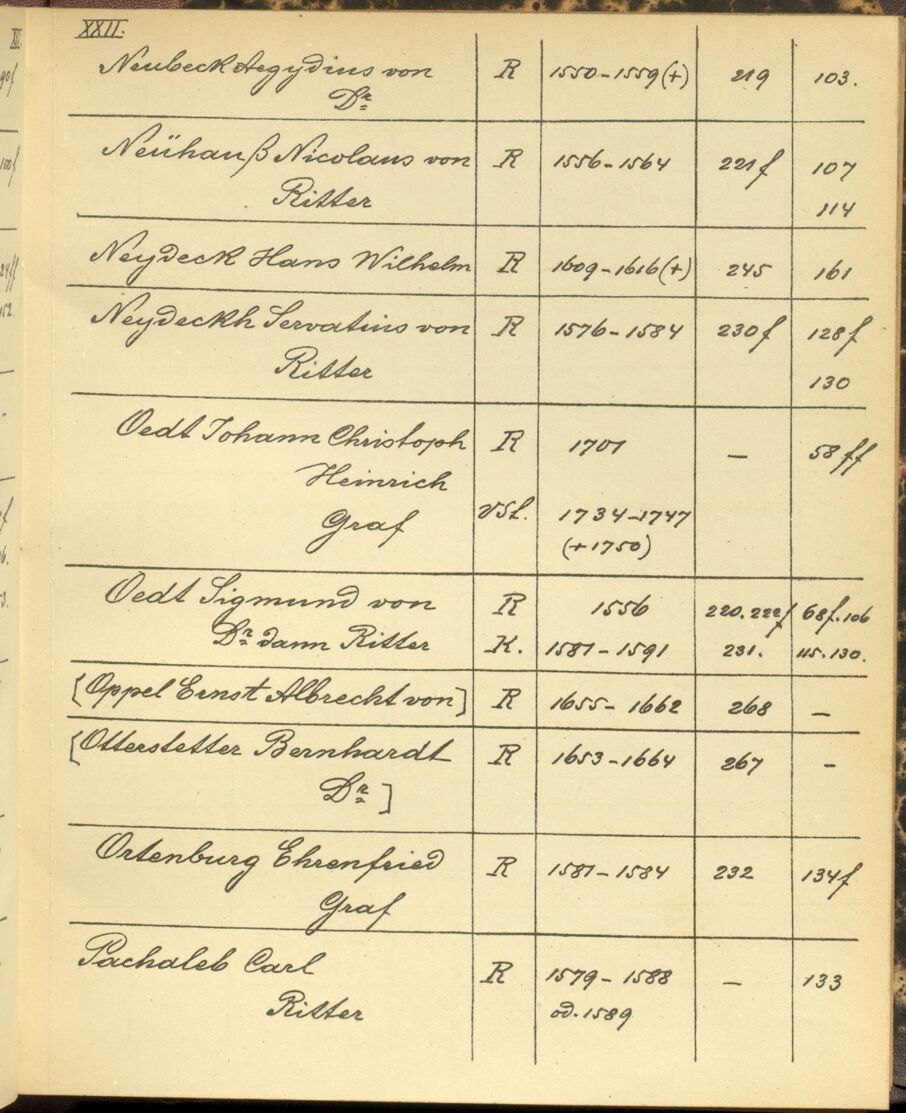 XXII.
Neubeck Aegydius von R 1550-1559(+) 219 103.
Dr
Neühauß Nicolaus von R 1556-1564 221f 107
Ritter 114
Neydeck Hans Wilhelm R 1609-1616(+) 245 161
Neydeckh Servatius von R 1576-1584 230f 128f
Ritter 130
Oedt Johann Christoph R 1701 — 58ff
Heinrich
Graf VSt. 1734-1747
(+1750)
Oedt Sigmund von R 1556 220.222f 68f.106
Dr dann Ritter K. 1587-1591 231. 115.130.
[Oppel Ernst Albrecht von] R 1655-1662 268 —
[Otterstetter Bernhardt R 1653-1664 267 -
Dr]
Ortenburg Ehrenfried R 1581-1584 232 134f
Graf
Pachaleb Carl R 1579-1588 — 133
Ritter od.1589